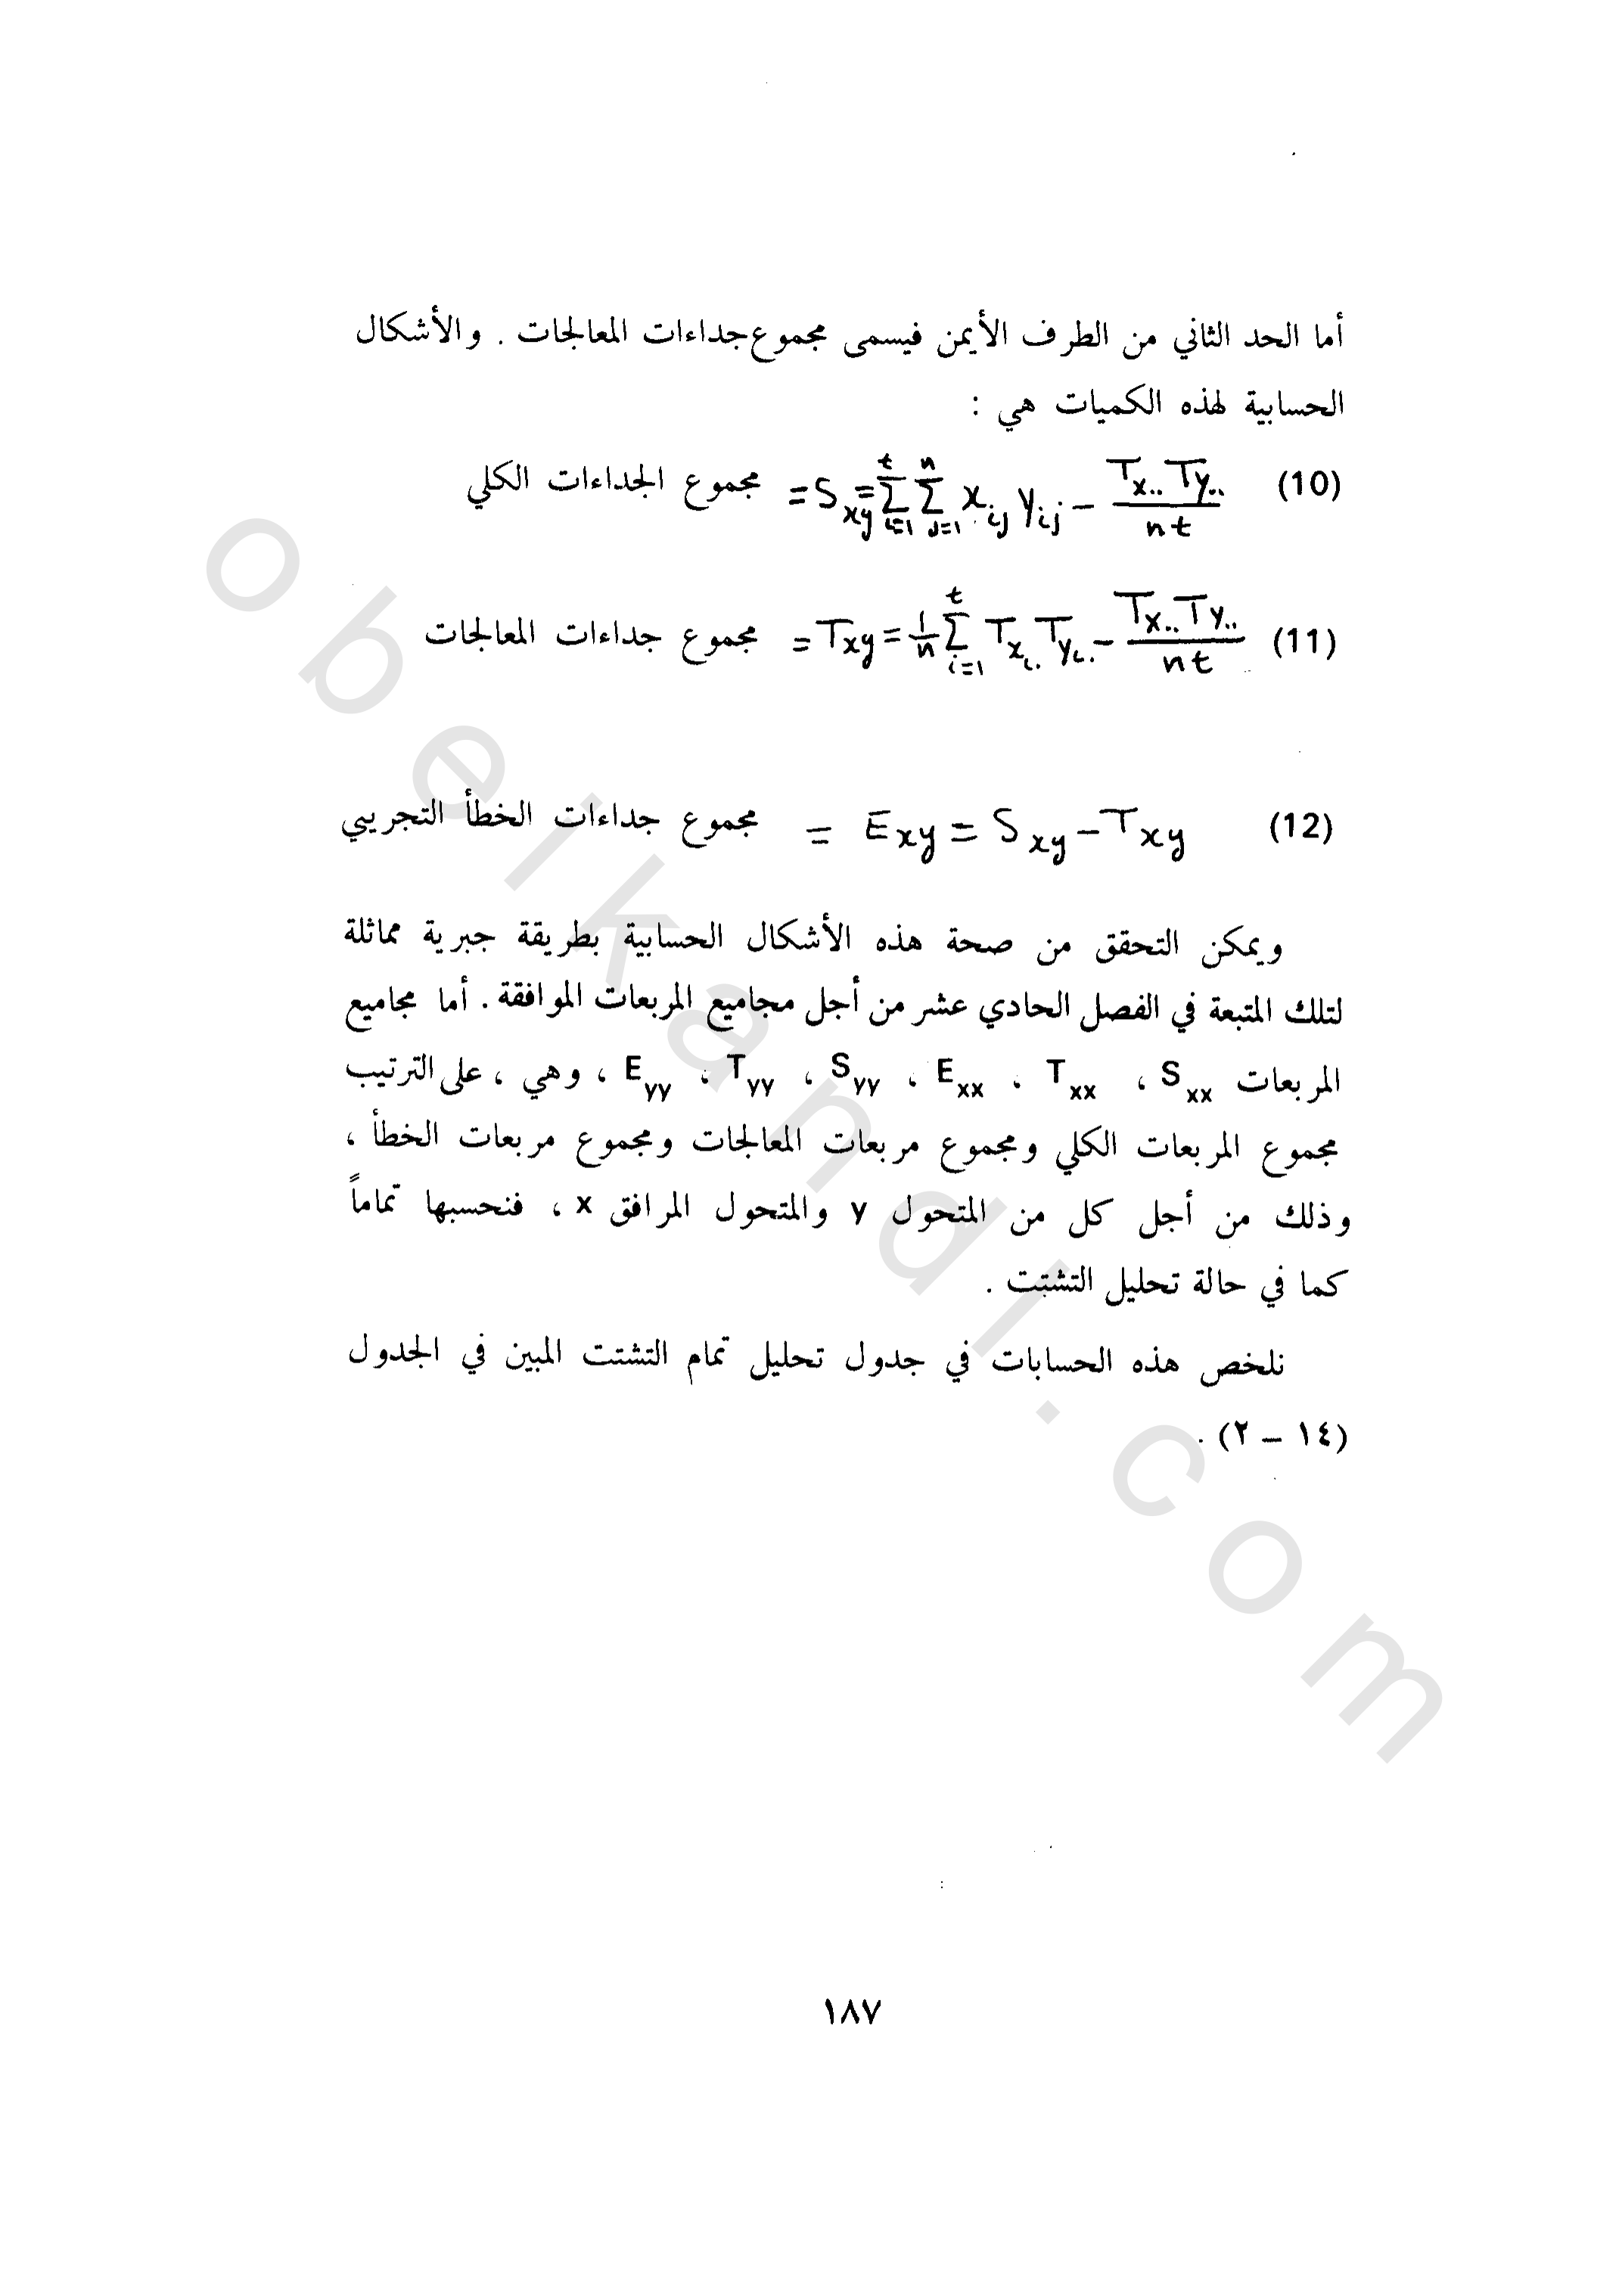 أما الحد الثاني من الطرف الأيمن فيسمى مجموع جداءات المعالجات . والأشكال
الحسابية لهذه الكميات هي :
(10) مجموع الجداءات الكلي = S_xy = Σ_{i=1}^{t} Σ_{j=1}^{n} x_ij y_ij − (T_x.. T_y..)/(nt)
(11) مجموع جداءات المعالجات = T_xy = 1/n Σ_{i=1}^{t} T_xi. T_yi. − (T_x.. T_y..)/(nt)
(12) مجموع جداءات الخطأ التجريبي = E_xy = S_xy − T_xy
ويمكن التحقق من صحة هذه الأشكال الحسابية بطريقة جبرية مماثلة
لتلك المتبعة في الفصل الحادي عشر من أجل مجاميع المربعات الموافقة . أما مجاميع
المربعات S_xx ، T_xx ، E_xx ، S_yy ، T_yy ، E_yy ، وهي ، على الترتيب
مجموع المربعات الكلي ومجموع مربعات المعالجات ومجموع مربعات الخطأ ،
وذلك من أجل كل من المتحول y والمتحول المرافق x ، فنحسبها تماماً
كما في حالة تحليل التشتت .
نلخص هذه الحسابات في جدول تحليل تمام التشتت المبين في الجدول
(١٤ – ٢) .
١٨٧
obeikandi.com